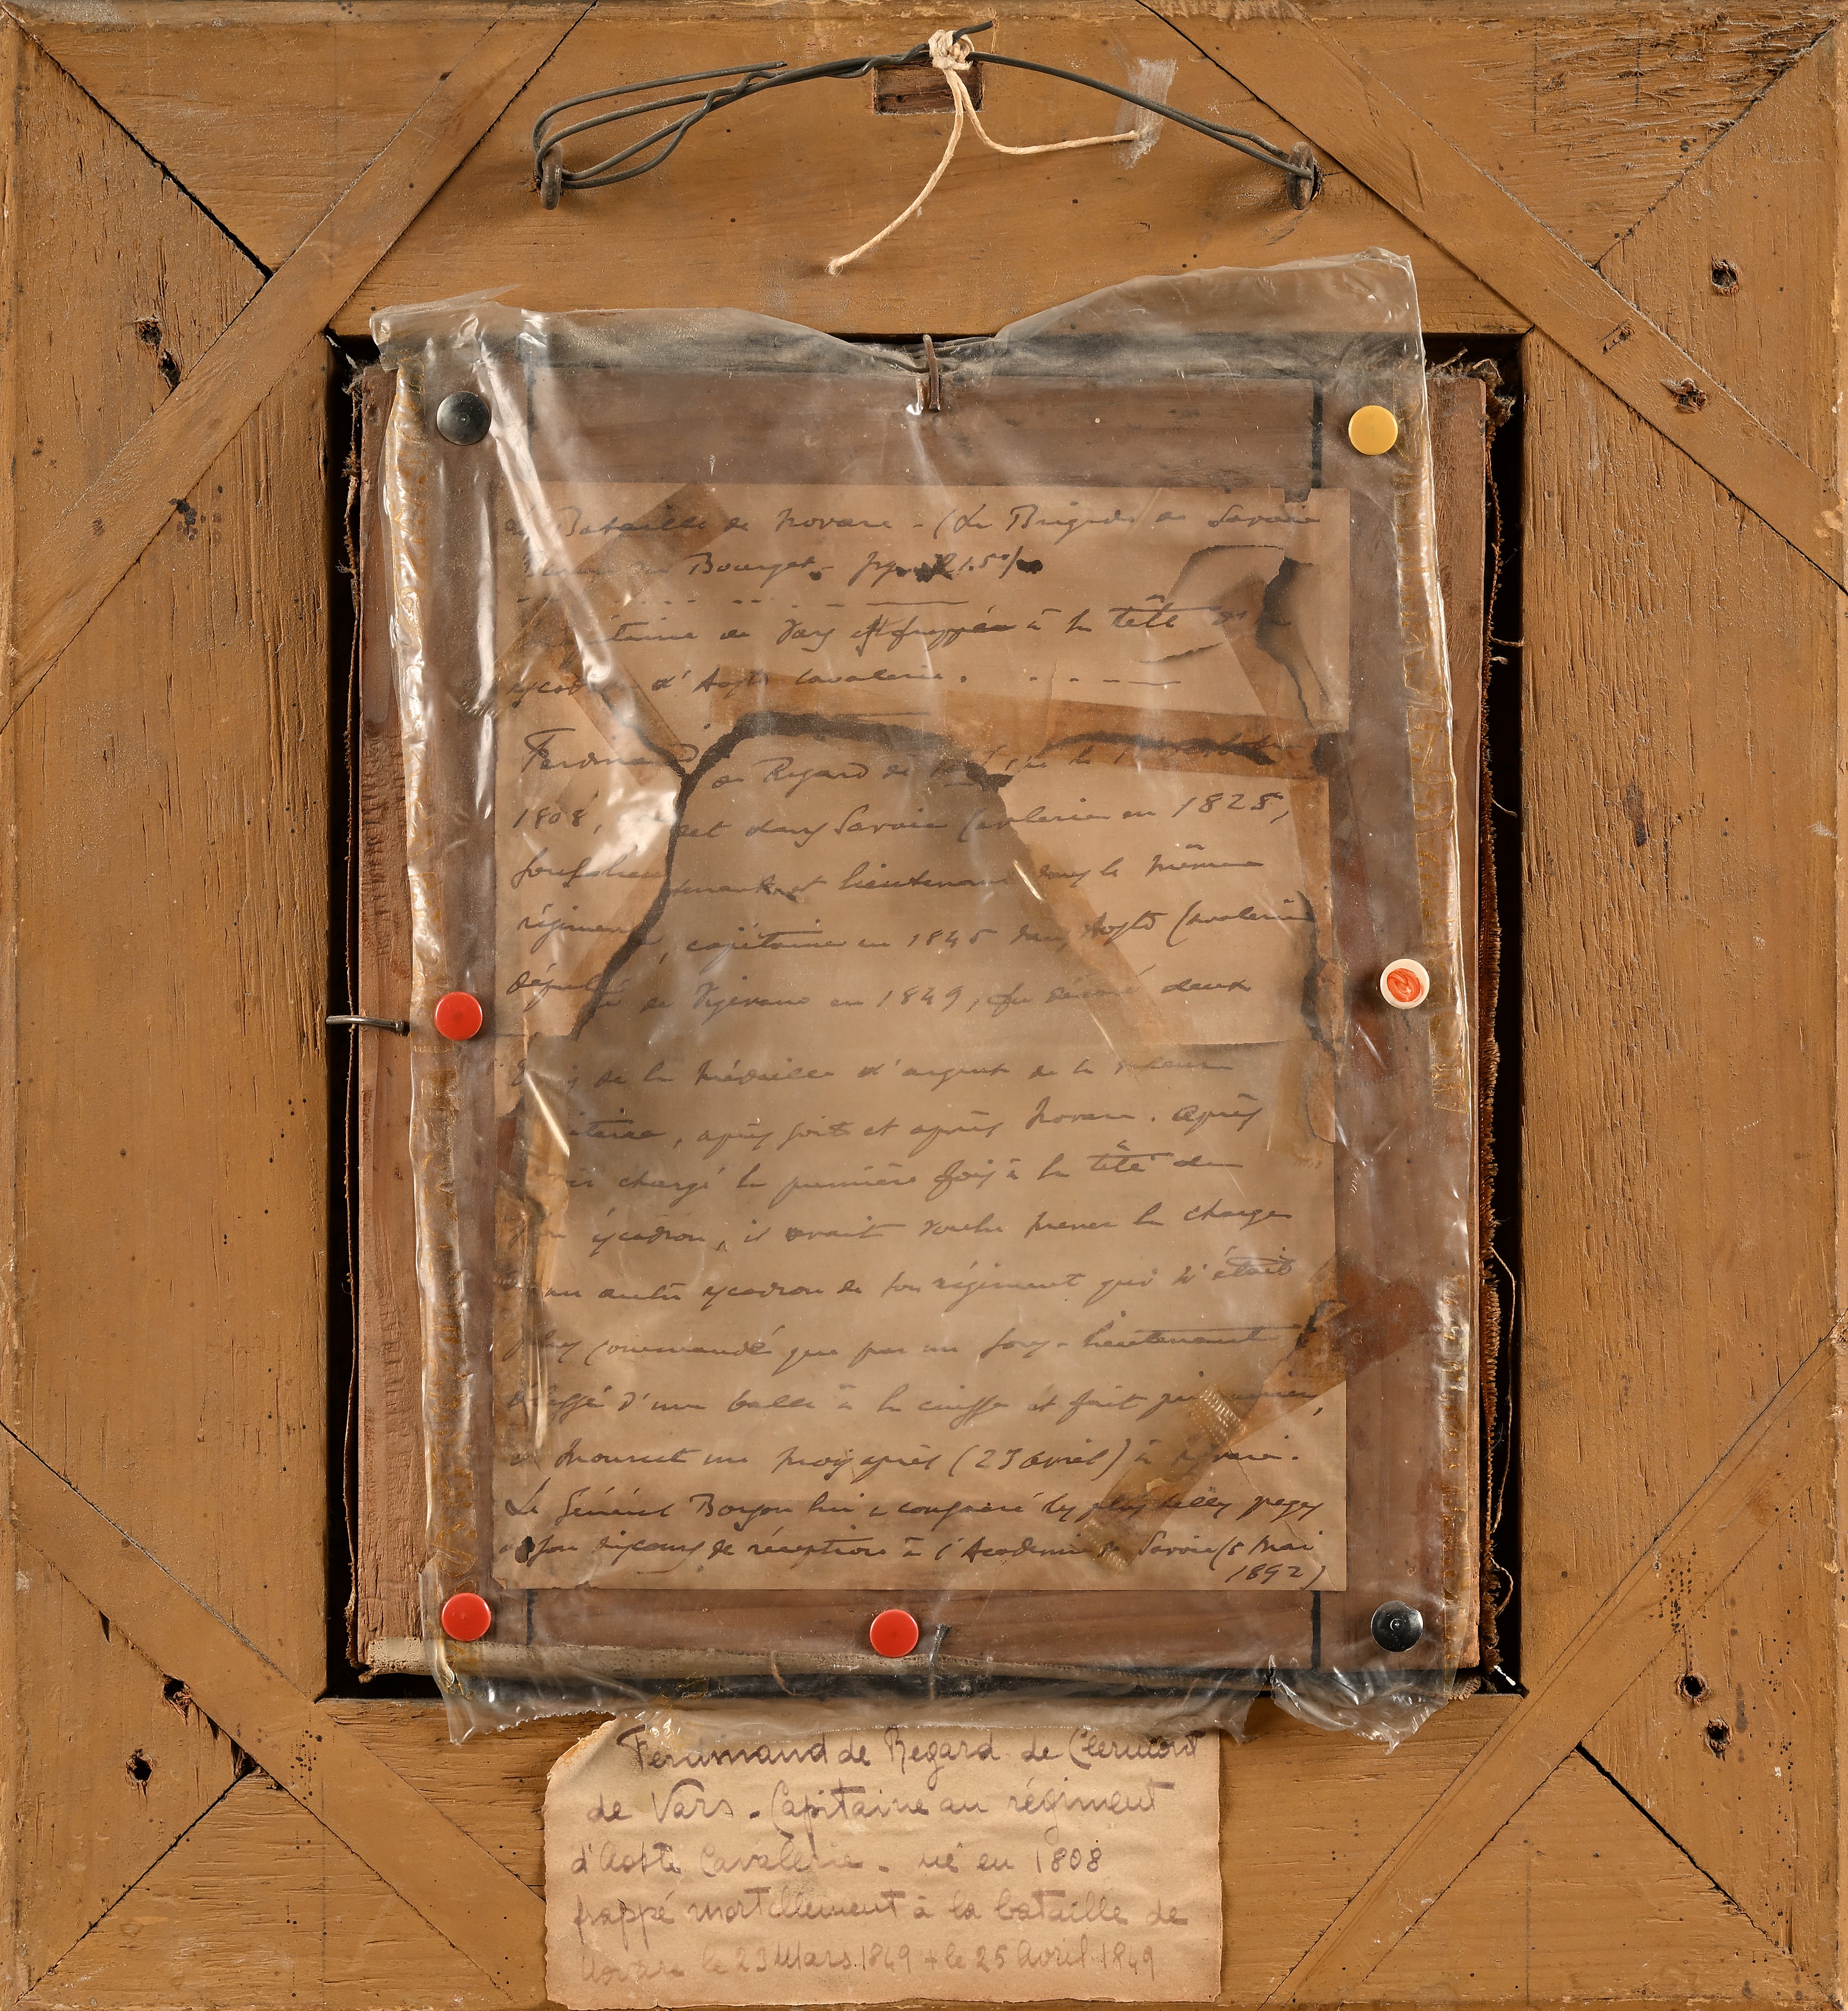 Bataille de Novare - (La Brigade de Savoie
Bourget - pages 21.50
de Vars est frappé à la tête
d'Aoste Cavalerie.
Ferdinand de Regard de né le
1808, cadet dans Savoie Cavalerie en 1828,
sous-lieutenant et lieutenant dans le même
régiment, capitaine en 1845 dans Aoste Cavalerie
député de Vigevano en 1849, fut décoré deux
fois de la médaille d'argent de la valeur
militaire, après Goito et après Novare. Après
avoir chargé la première fois à la tête de
son escadron, il avait voulu mener la charge
d'un autre escadron de son régiment qui n'était
plus commandé que par un sous-lieutenant
blessé d'une balle à la cuisse et fait prisonnier,
il mourut un mois après (23 avril) à
Le Général Borson lui a consacré les plus belles pages
de son discours de réception à l'Académie de Savoie (5 mai
1892)
Ferdinand de Regard de Clermont
de Vars - Capitaine au régiment
d'Aoste Cavalerie - né en 1808
frappé mortellement à la bataille de
Novare le 23 Mars 1849 + le 25 Avril 1849